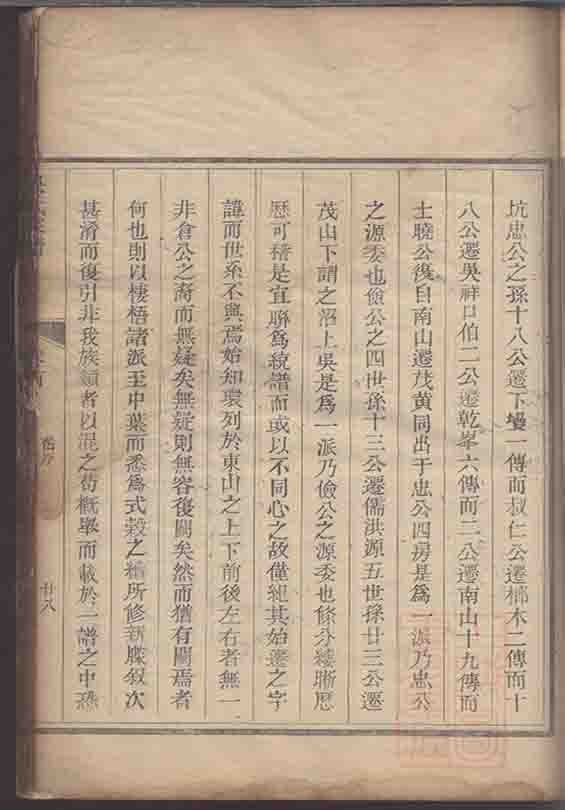 坑忠公之孫十八公遷下墁一傳而叔仁公遷榔木二傳而十
八公遷吳祥口伯二公遷乾峯六傳而二公遷南山十九傳而
士曉公復自南山遷茂黄同出于忠公四房是爲一派乃忠公
之源委也儉公之四世孫十三公遷儒洪源五世孫廿三公遷
茂山下謂之沼上吳是爲一派乃儉公之源委也條分縷晰歷
歷可稽是宜聯爲統譜而或以不同心之故僅紀其始遷之字
諱而世系不與焉始知環列於東山之上下前後左右者無一
非倉公之裔而無疑矣無疑則無容復闕矣然而猶有闕焉者
何也則以棲梧諸派至中葉而悉爲式穀之續所修新牒叙次
甚淆而復引非我族類者以混之苟概舉而載於一譜之中恐
舊序
廿八